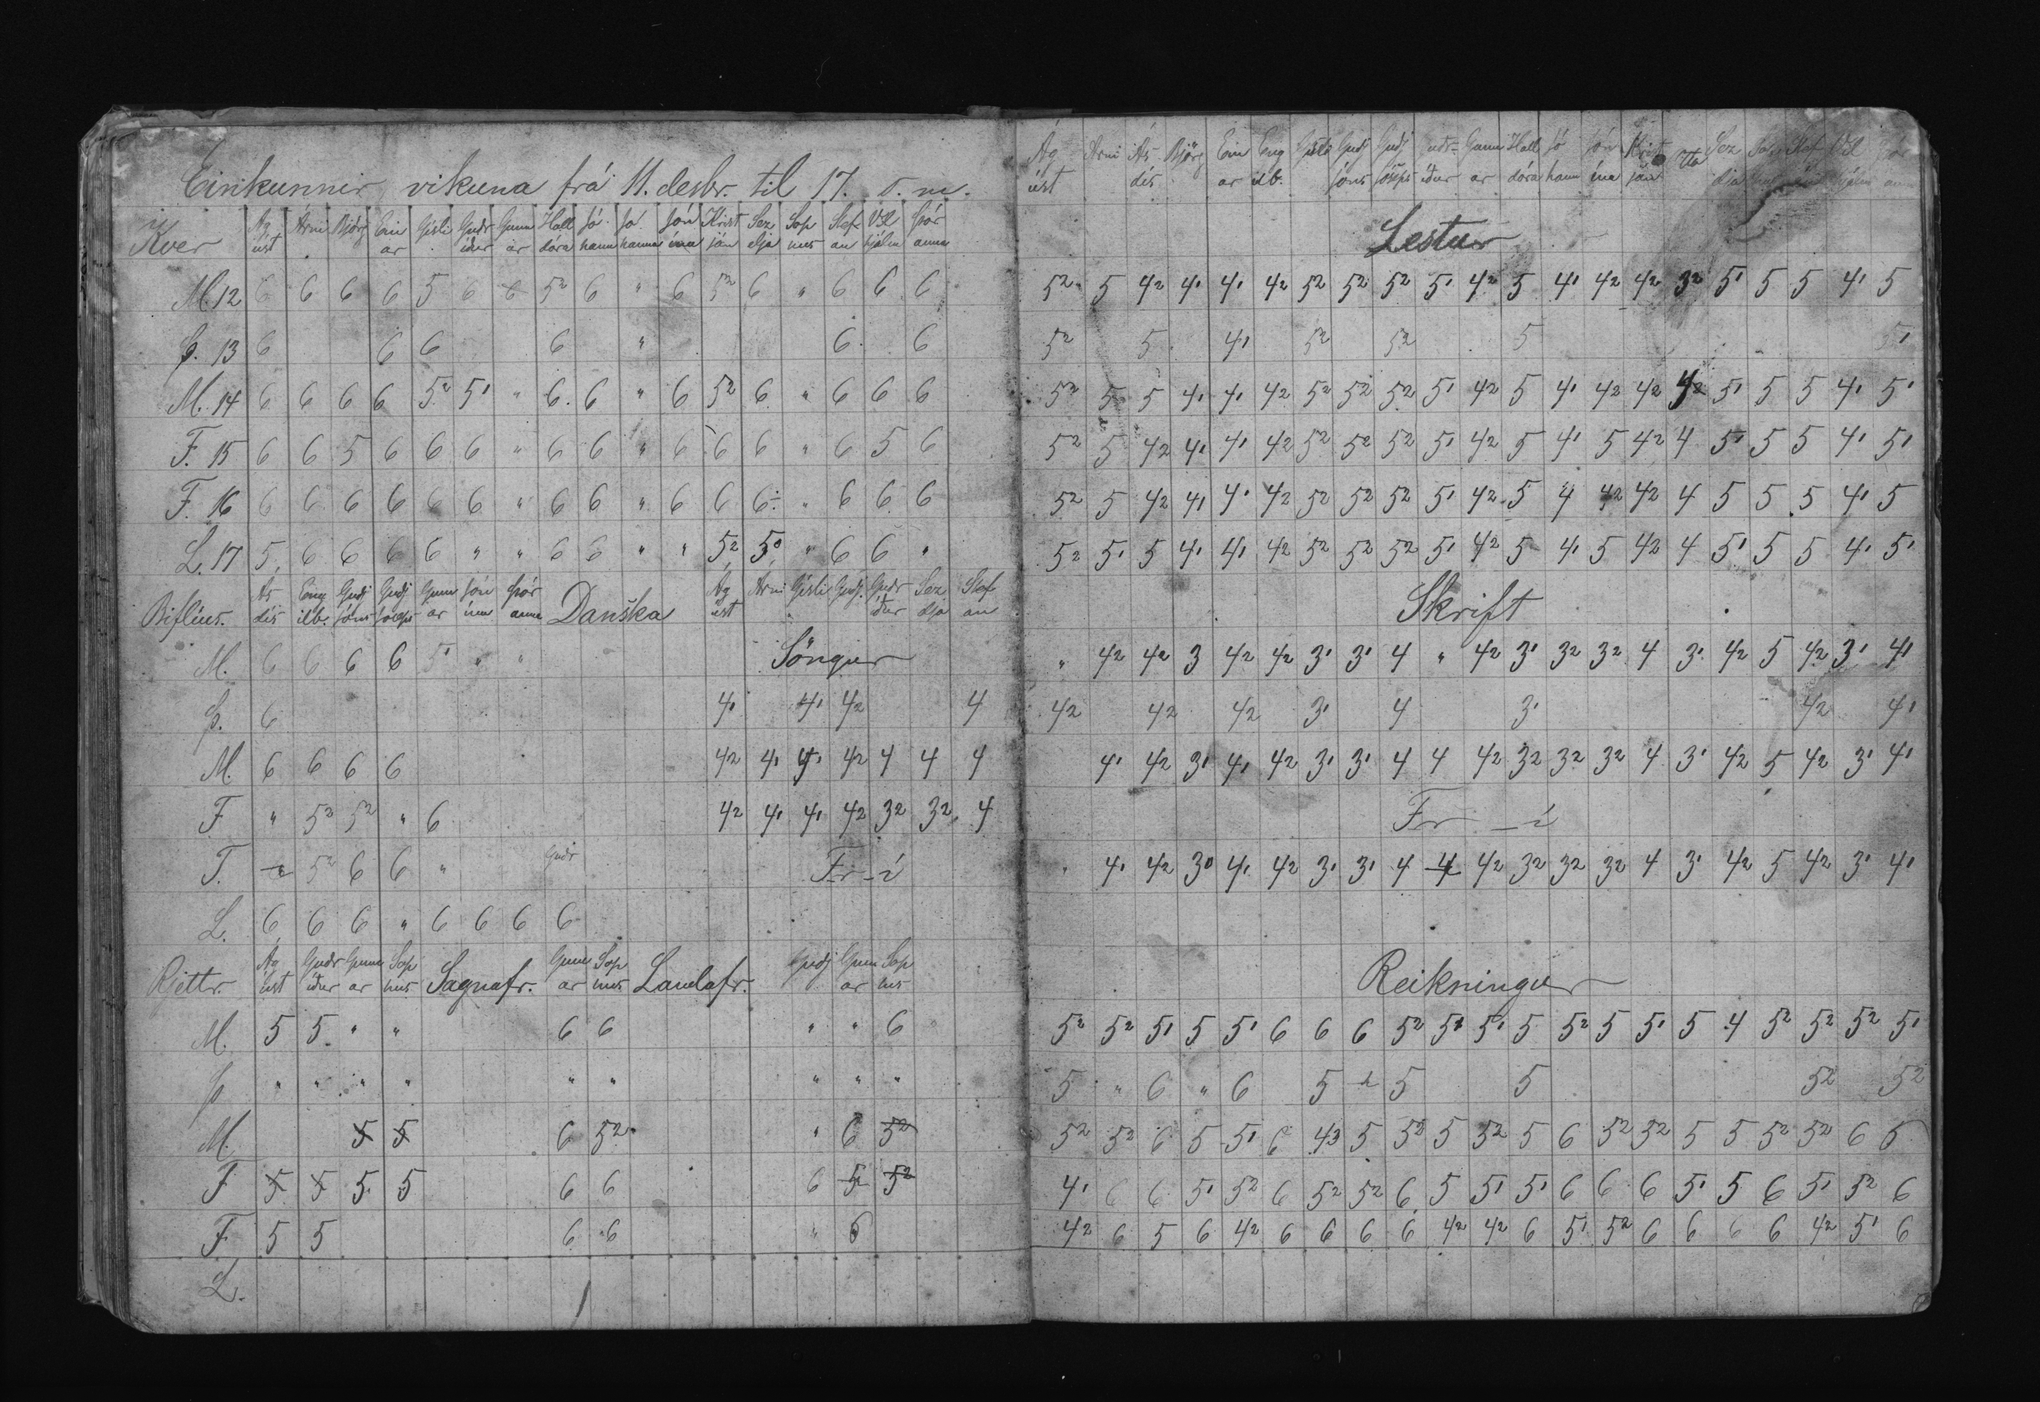 Einkunnir vikuna frá 11. desbr. til 17. s. m.
Kver Ágúst Árni Björg Einar Gísli Guðríður Gunnar Halldóra Jóhann Jóhanna Jónína Kristján Sezelja Sop nus Stefan Vilhjálm Þóranna
M. 12 6 6 6 6 5 6 6 5² 6 " 6 5² 6 " 6 6 6
Þ. 13 6 6 6 6 " 6 6
M. 14 6 6 6 6 5² 5¹ " 6 6 " 6 5² 6 " 6 6 6
F. 15 6 6 5 6 6 6 " 6 6 " 6 6 6 " 6 5 6
F. 16 6 6 6 6 6 6 " 6 6 " 6 6 6 " 6 6 6
L. 17 5 6 6 6 6 " " 6 6 " " 5² 5⁰ " 6 6 "
Biflíus. Ásdís Engilb. Guðjóns Guðj Jóseps Gunnar Jónína Þóranna Danska Ágúst Árni Gísli Guðj. Guðríður Sezelja Stefan
M. 6 6 6 6 5¹ " " Söngur
Þ. 6 4¹ 4¹ 4² 4
M. 6 6 6 6 4² 4¹ 4¹ 4² 4 4 4
F " 5² 5² " 6 4² 4¹ 4¹ 4² 3² 3² 4
F. 5² 6 6 " Guðr Fr - í
L. 6 6 6 " 6 6 6 6
Rjettr. Ágúst Guðríður Gunnar Sop nus Sagnafr. Gunnar Sop nus Landafr. Guðj Gunnar Sop nus
M. 5 5 " " 6 6 " " 6
Þ " " " " " " " " "
M. 5 5 6 5² " 6 5²
F 5 5 5 5 6 6 6 5 5²
F 5 5 6 6 " 6
L.
Ágúst Árni Ásdís Björg Einar Engilb. Gísli Guðjóns Guðj Jóseps Guðríður Gunnar Halldóra Jóhann Jónína Kristján Sezelja Stef Vil hjálm Þóranna
Lestur
5² 5 4² 4¹ 4¹ 4² 5² 5² 5² 5¹ 4² 5 4¹ 4² 4² 3² 5¹ 5 5 4¹ 5
5² 5 4¹ 5² 5² 5 5¹
5² 5 5 4¹ 4¹ 4² 5² 5² 5² 5¹ 4² 5 4¹ 4² 4² 5¹ 5 5 4¹ 5¹
5² 5 4² 4¹ 4¹ 4² 5² 5² 5² 5¹ 4² 5 4¹ 5 4² 4 5¹ 5 5 4¹ 5¹
5² 5 4² 4¹ 4¹ 4² 5² 5² 5² 5¹ 4² 5 4 4² 4² 4 5 5 5 4¹ 5
5² 5¹ 5 4¹ 4¹ 4² 5² 5² 5² 5¹ 4² 5 4¹ 5 4² 4 5¹ 5 5 4¹ 5¹
Skrift
" 4² 4² 3 4² 4² 3¹ 3¹ 4 " 4² 3¹ 3² 3² 4 3¹ 4² 5 4² 3¹ 4¹
4² 4² 4² 3¹ 4 3¹ 4² 4¹
4¹ 4² 3¹ 4¹ 4² 3¹ 3¹ 4 4 4² 3² 3² 3² 4 3¹ 4² 5 4² 3¹ 4¹
Fr - í
" 4¹ 4² 3⁰ 4¹ 4² 3¹ 3¹ 4 4 4² 3² 3² 3² 4 3¹ 4² 5 4² 3¹ 4¹
Reikningur
5² 5² 5¹ 5 5¹ 6 6 6 5² 5¹ 5¹ 5 5² 5 5¹ 5 4 5² 5² 5² 5¹
5 " 6 " 6 5 5 5 5² 5²
5² 5² 6 5 5¹ 6 4³ 5 5² 5 5² 5 6 5² 5² 5 5 5² 5² 6 6
4¹ 6 6 5¹ 5² 6 5² 5² 6 5 5¹ 5¹ 6 6 6 5¹ 5 6 5¹ 5² 6
4² 6 5 6 4² 6 6 6 6 4² 4² 6 5¹ 5² 6 6 6 6 4² 5¹ 6